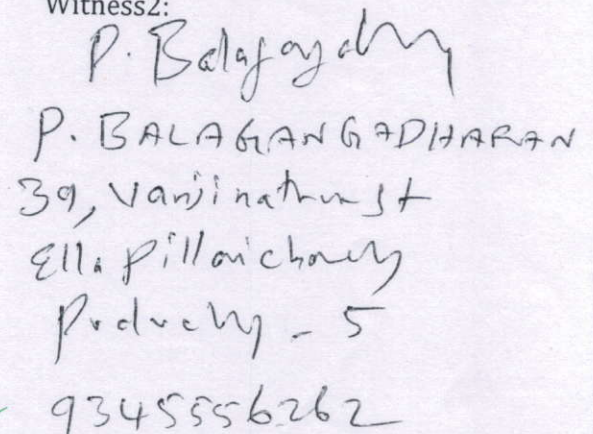 Witness2:
P. Balagangadharan
P. BALAGANGADHARAN
39, Vanjinathan st
Ella Pillaichavady
Puducherry - 5
9345556262